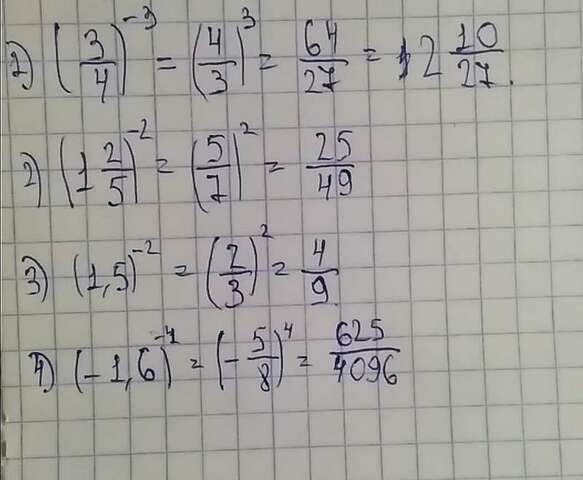 1) (3/4)^-3 = (4/3)^3 = 64/27 = 2 10/27.
2) (1 2/5)^-2 = (5/7)^2 = 25/49
3) (1,5)^-2 = (2/3)^2 = 4/9.
4) (-1,6)^-4 = (-5/8)^4 = 625/4096